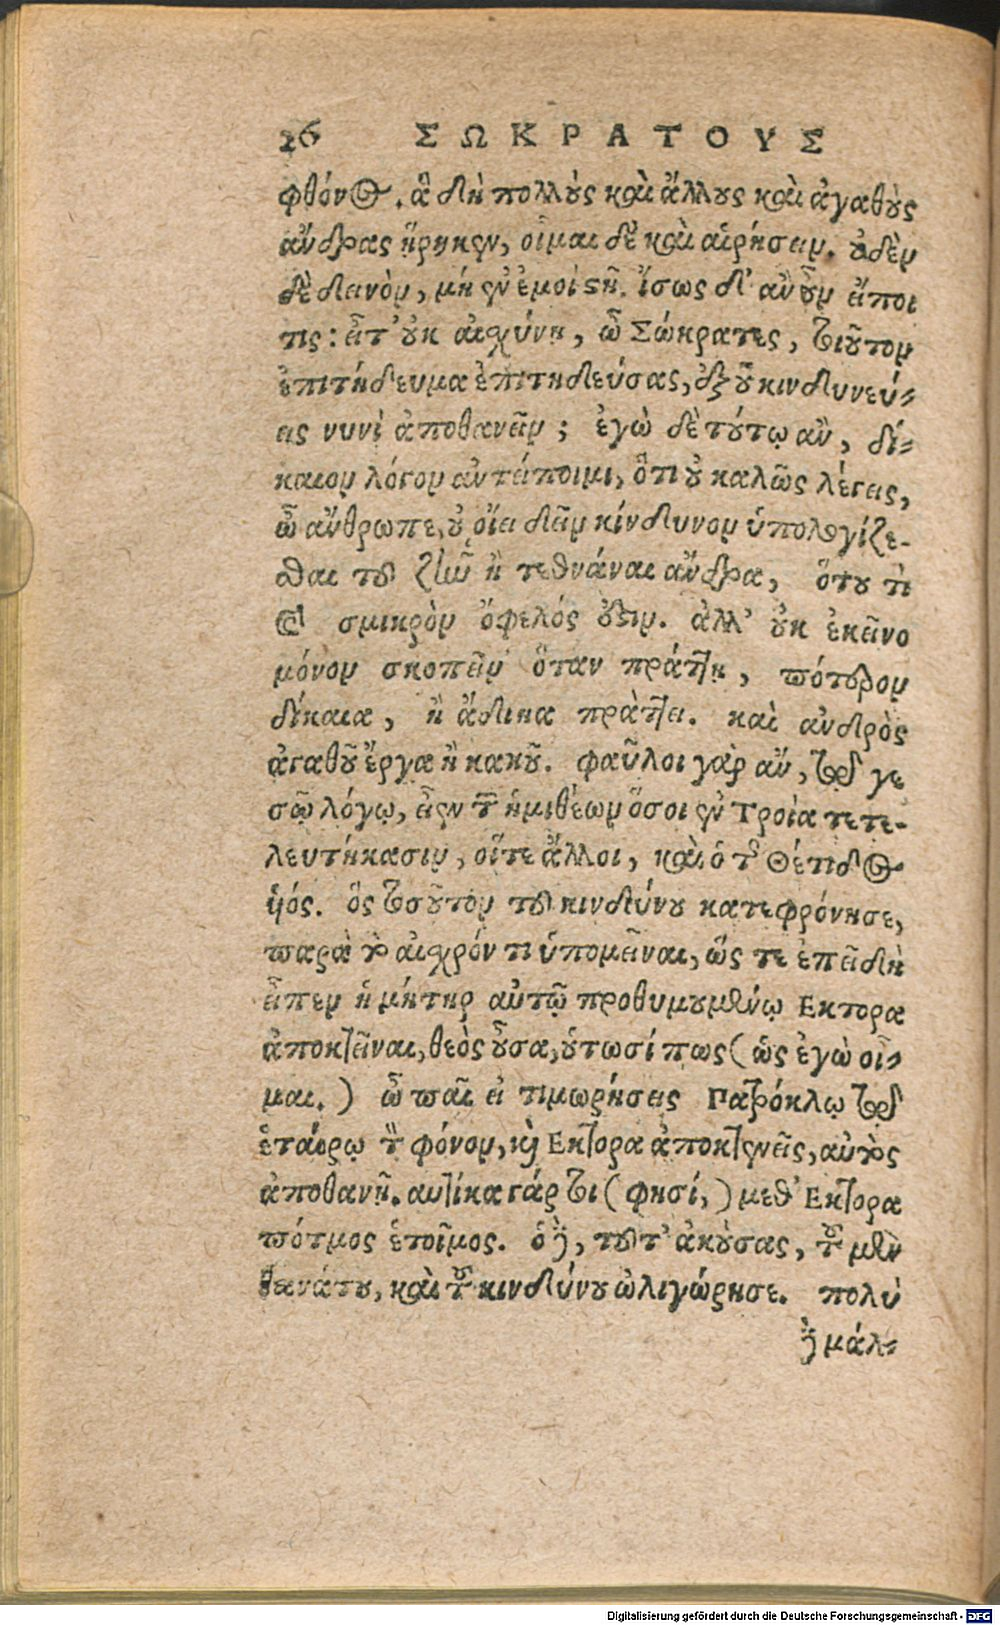 26 ΣΩΚΡΑΤΟΥΣ
φθόνος. ἃ δὴ πολλοὺς καὶ ἄλλους καὶ ἀγαθοὺς
ἄνδρας ᾕρηκεν, οἶμαι δὲ καὶ αἱρήσειν. οὐδὲν
δὲ δεινὸν, μή ἐν ἐμοὶ στῇ. ἴσως δ' ἂν οὖν εἴποι
τις: εἶτ' οὐκ αἰσχύνῃ, ὦ Σώκρατες, τοιοῦτον
ἐπιτήδευμα ἐπιτηδεύσας, ἐξ οὗ κινδυνεύ-
εις νυνὶ ἀποθανεῖν; ἐγὼ δὲ τούτῳ ἂν, δί-
καιον λόγον ἀντείποιμι, ὅτι οὐ καλῶς λέγεις,
ὦ ἄνθρωπε, εἰ οἴει δεῖν κίνδυνον ὑπολογίζε-
σθαι τοῦ ζῆν ἢ τεθνάναι ἄνδρα, ὅτου τὶ
καὶ σμικρὸν ὄφελός ἐστιν. ἀλλ' οὐκ ἐκεῖνο
μόνον σκοπεῖν ὅταν πράττῃ, πότερον
δίκαια, ἢ ἄδικα πράττει. καὶ ἀνδρὸς
ἀγαθοῦ ἔργα ἢ κακοῦ. φαῦλοι γὰρ ἂν, τῷ γε
σῷ λόγῳ, εἶεν τῶν ἡμιθέων ὅσοι ἐν Τροίᾳ τετε-
λευτήκασιν, οἵ τε ἄλλοι, καὶ ὁ τῆς Θέτιδος
ὑιός. ὃς τοσοῦτον τοῦ κινδύνου κατεφρόνησε,
παρὰ τὸ αἰσχρόν τι ὑπομεῖναι, ὥς τε ἐπειδὴ
εἶπεν ἡ μήτηρ αὐτῷ προθυμουμένῳ Εκτορα
ἀποκτεῖναι, θεὸς οὖσα, οὑτωσί πως (ὡς ἐγὼ οἶ-
μαι.) ὦ παῖ εἰ τιμωρήσεις Πατρόκλῳ τῷ
ἑταίρῳ τὸν φόνον, καὶ Εκτορα ἀποκτενεῖς, αὐτὸς
ἀποθανῇ. αυτίκα γάρ τοι (φησί,) μεθ' Εκτορα
πότμος ἑτοῖμος. ὁ δὲ, τοῦτ' ἀκούσας, τοῦ μὲν
θανάτου, καὶ τοῦ κινδύνου ὠλιγώρησε. πολὺ
δὲ μάλ-
Digitalisierung gefördert durch die Deutsche Forschungsgemeinschaft - DFG